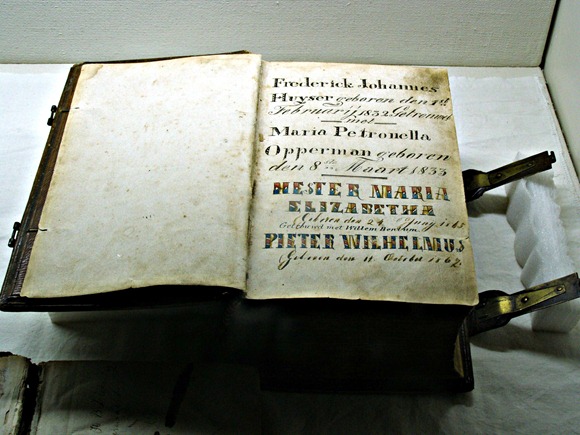 Frederick Johannes
Huyser geboren den 5de
Februarij 1832 Getrouwd
met
Maria Petronella
Opperman geboren
den 8ste Maart 1833
HESTER MARIA
ELIZABETHA
Geboren den 24 Junij
Getrouwd met Willem
PIETER WILHELMUS
Geboren den 11 October 186